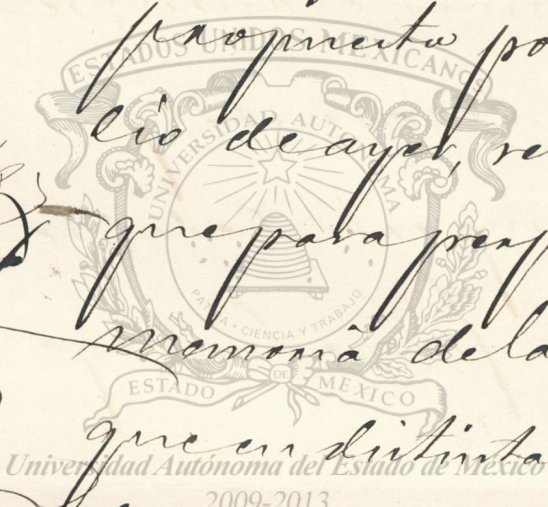 propuesto po
cio de ayer, re
que para perp
memoria de la
que en distinta
ESTADOS UNIDOS MEXICANOS
UNIVERSIDAD AUTÓNOMA
PATRIA · CIENCIA Y TRABAJO
ESTADO DE MÉXICO
Universidad Autónoma del Estado de México
2009-2013